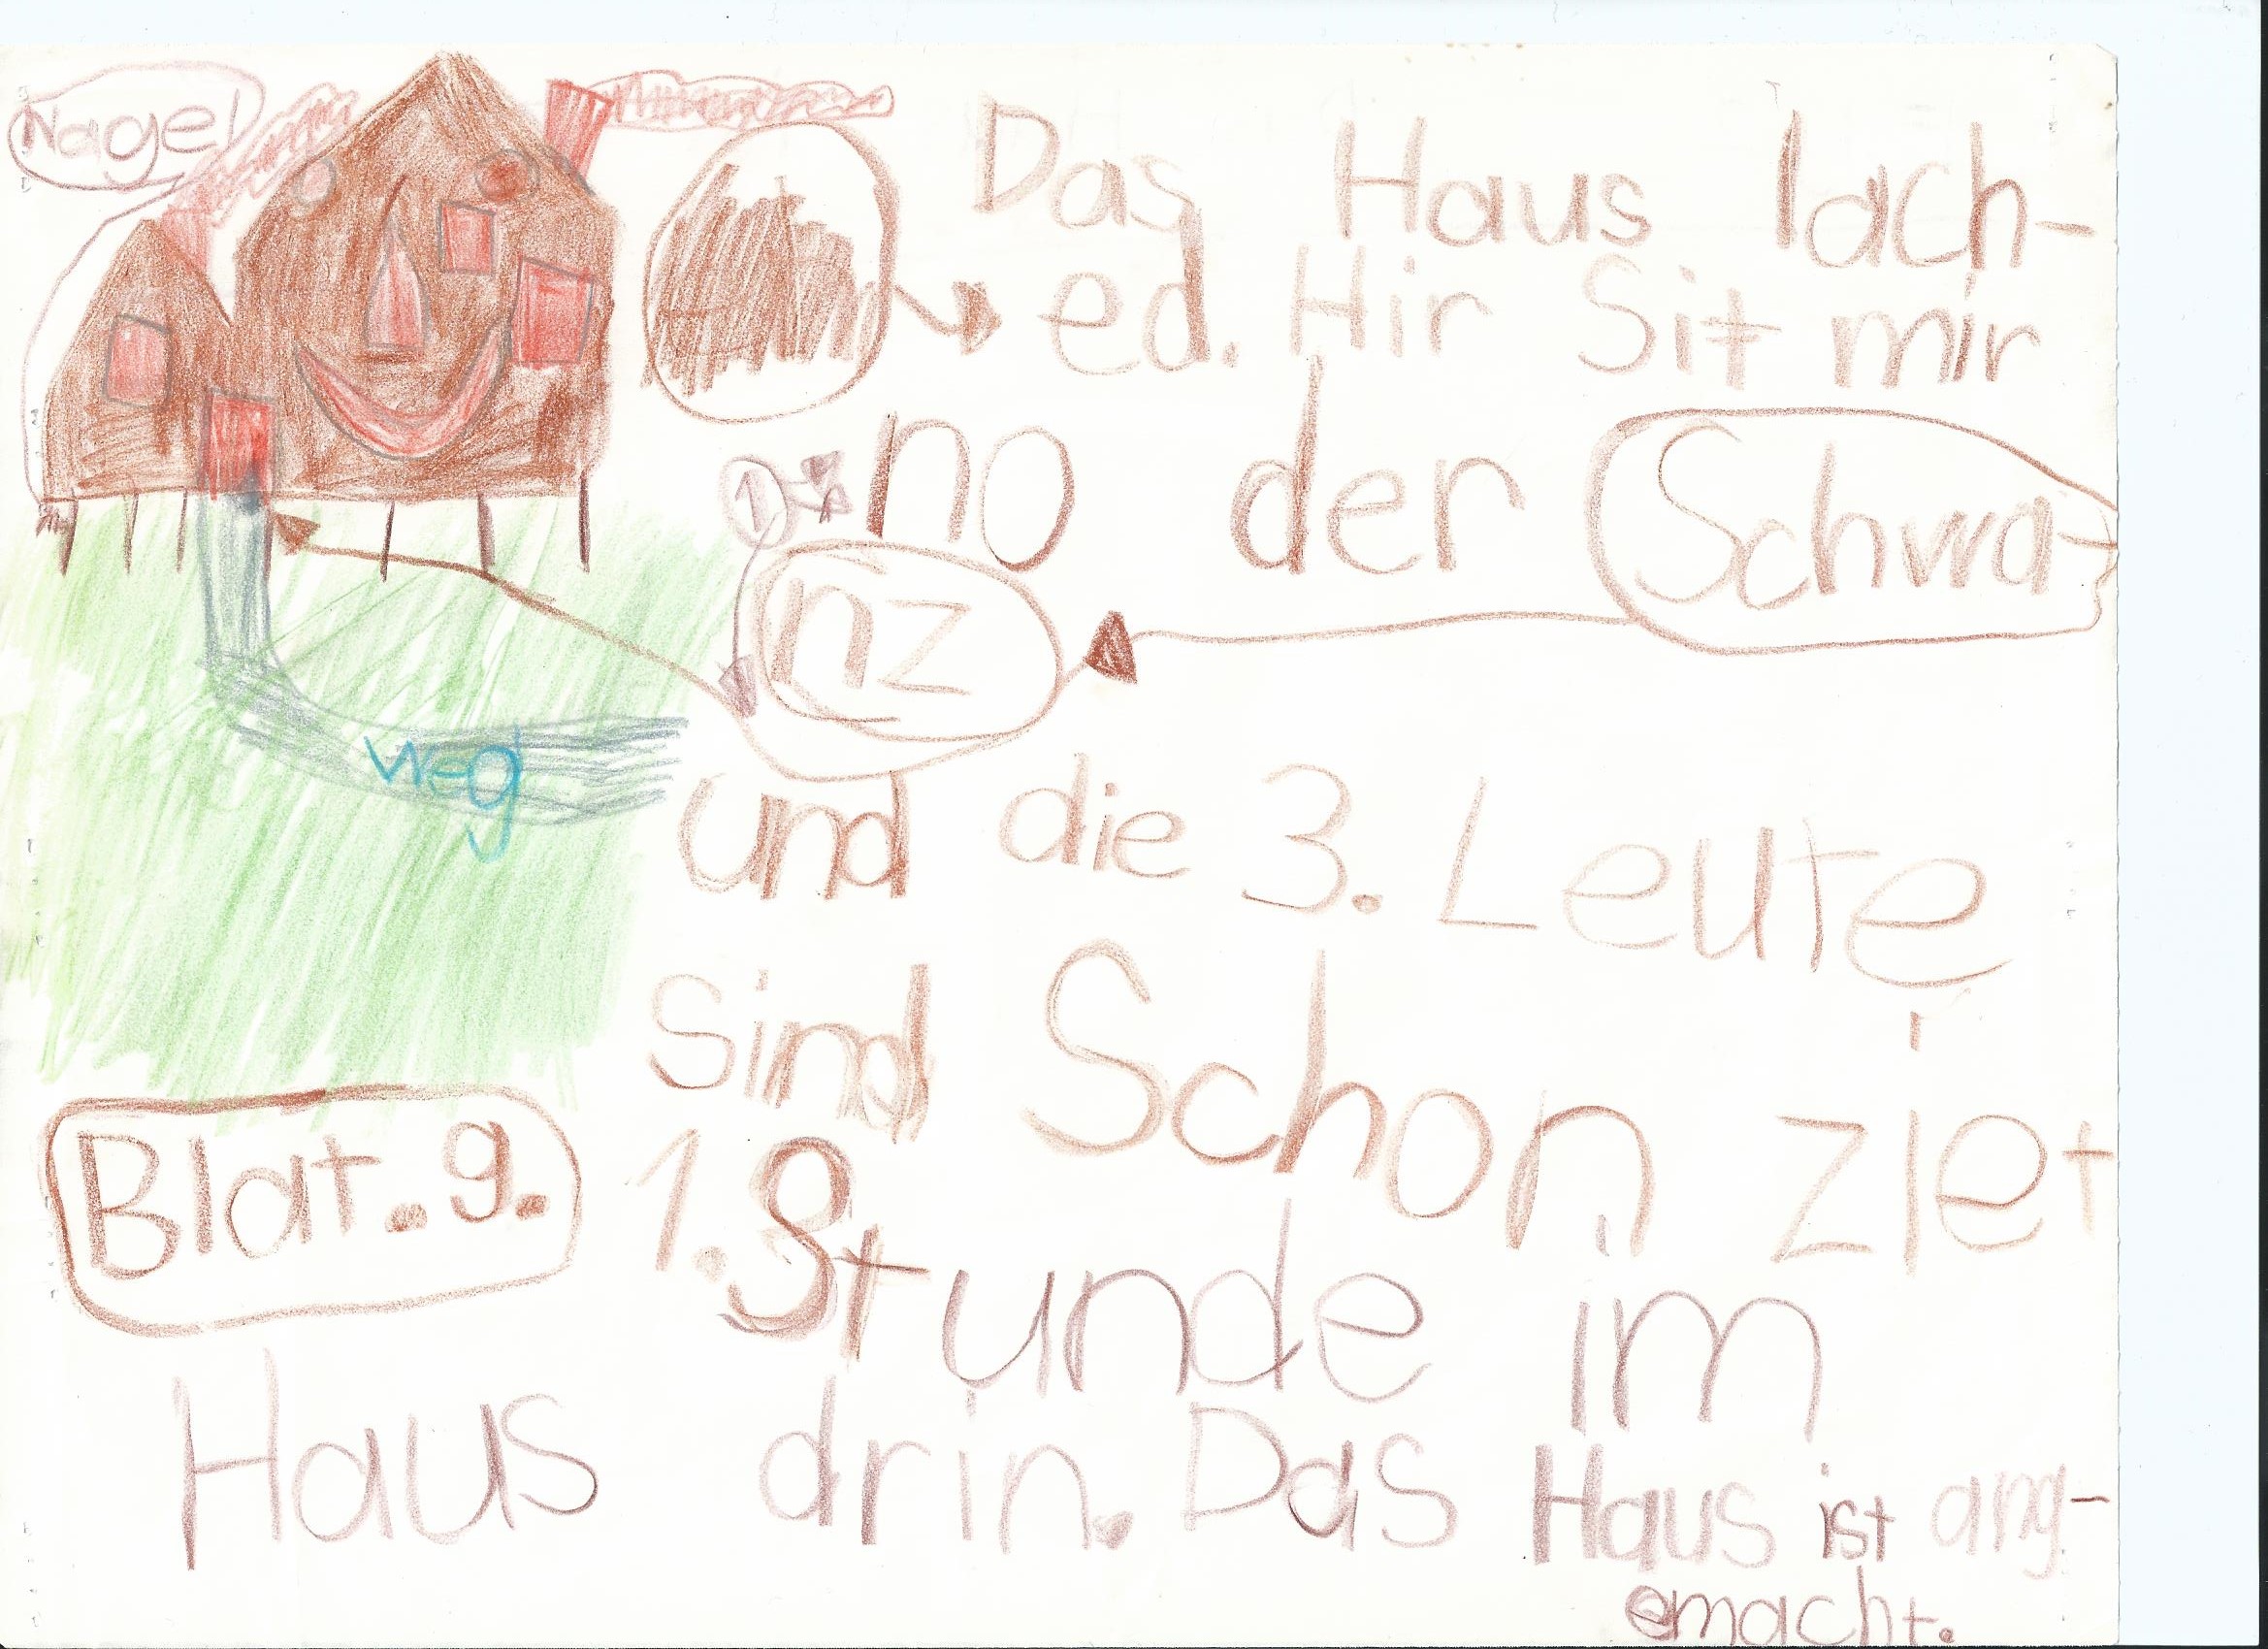 Nagel
Das Haus lach-
ed. Hir Sit mir
no der Schwa-
1
nz
weg
und die 3. Leute
sind Schon ziet
Blat. 9.
1. Stunde im
Haus drin. Das Haus ist ang-
emacht.